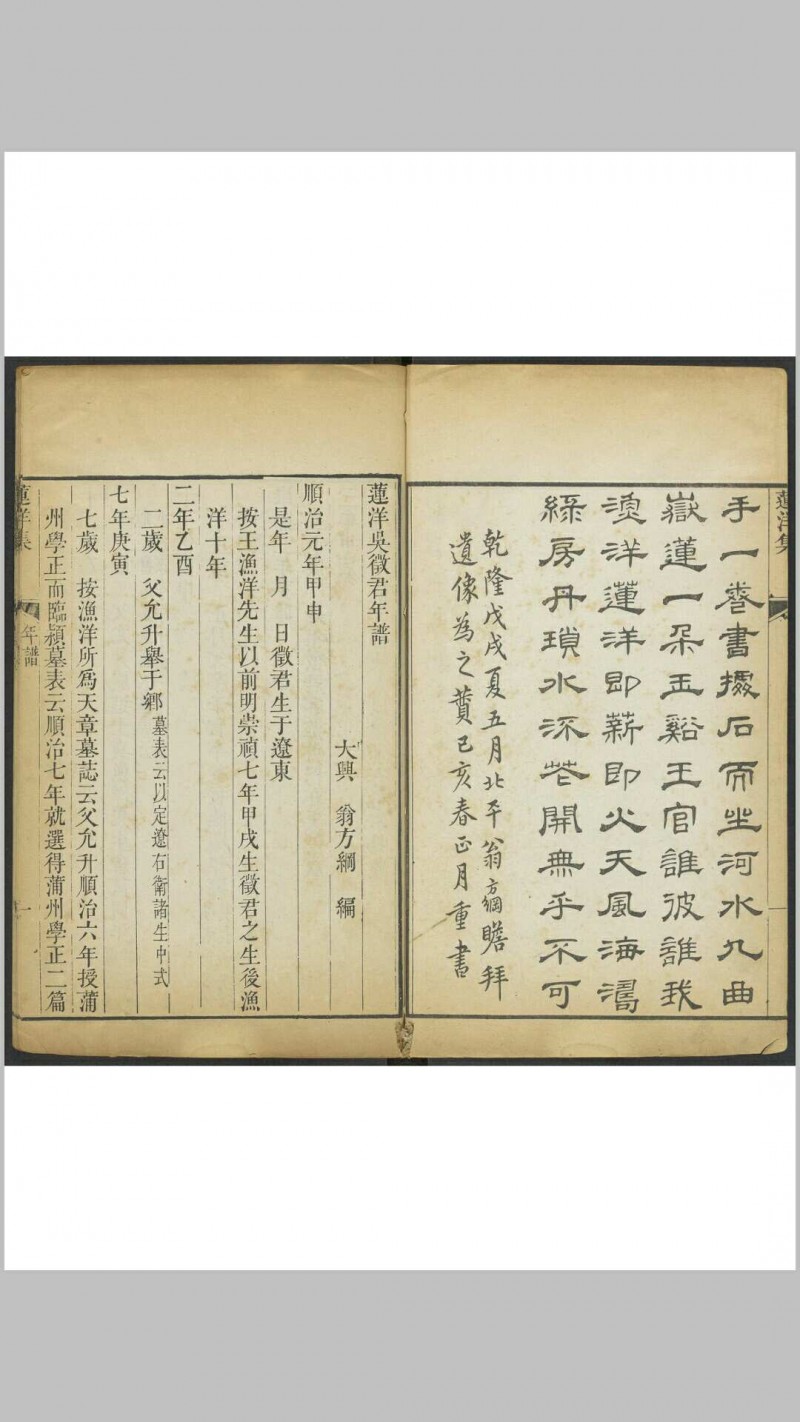 蓮洋集
手一卷書據石而坐河水九曲
嶽蓮一朵玉谿王官誰彼誰我
漁洋蓮洋即薪即火天風海濤
綠房丹瑣水流花開無乎不可
乾隆戊戌夏五月北平翁方綱瞻拜
遺像為之贊己亥春正月重書
一
蓮洋吳徵君年譜
大興　翁方綱　編
順治元年甲申
是年　月　日徵君生于遼東
按王漁洋先生以前明崇禎七年甲戌生徵君之生後漁
洋十年
二年乙酉
二歲　父允升舉于鄉墓表云以定遼右衛諸生中式
七年庚寅
七歲　按漁洋所爲天章墓誌云父允升順治六年授蒲
州學正而臨潁墓表云順治七年就選得蒲州學正二篇
蓮洋集
年譜
一